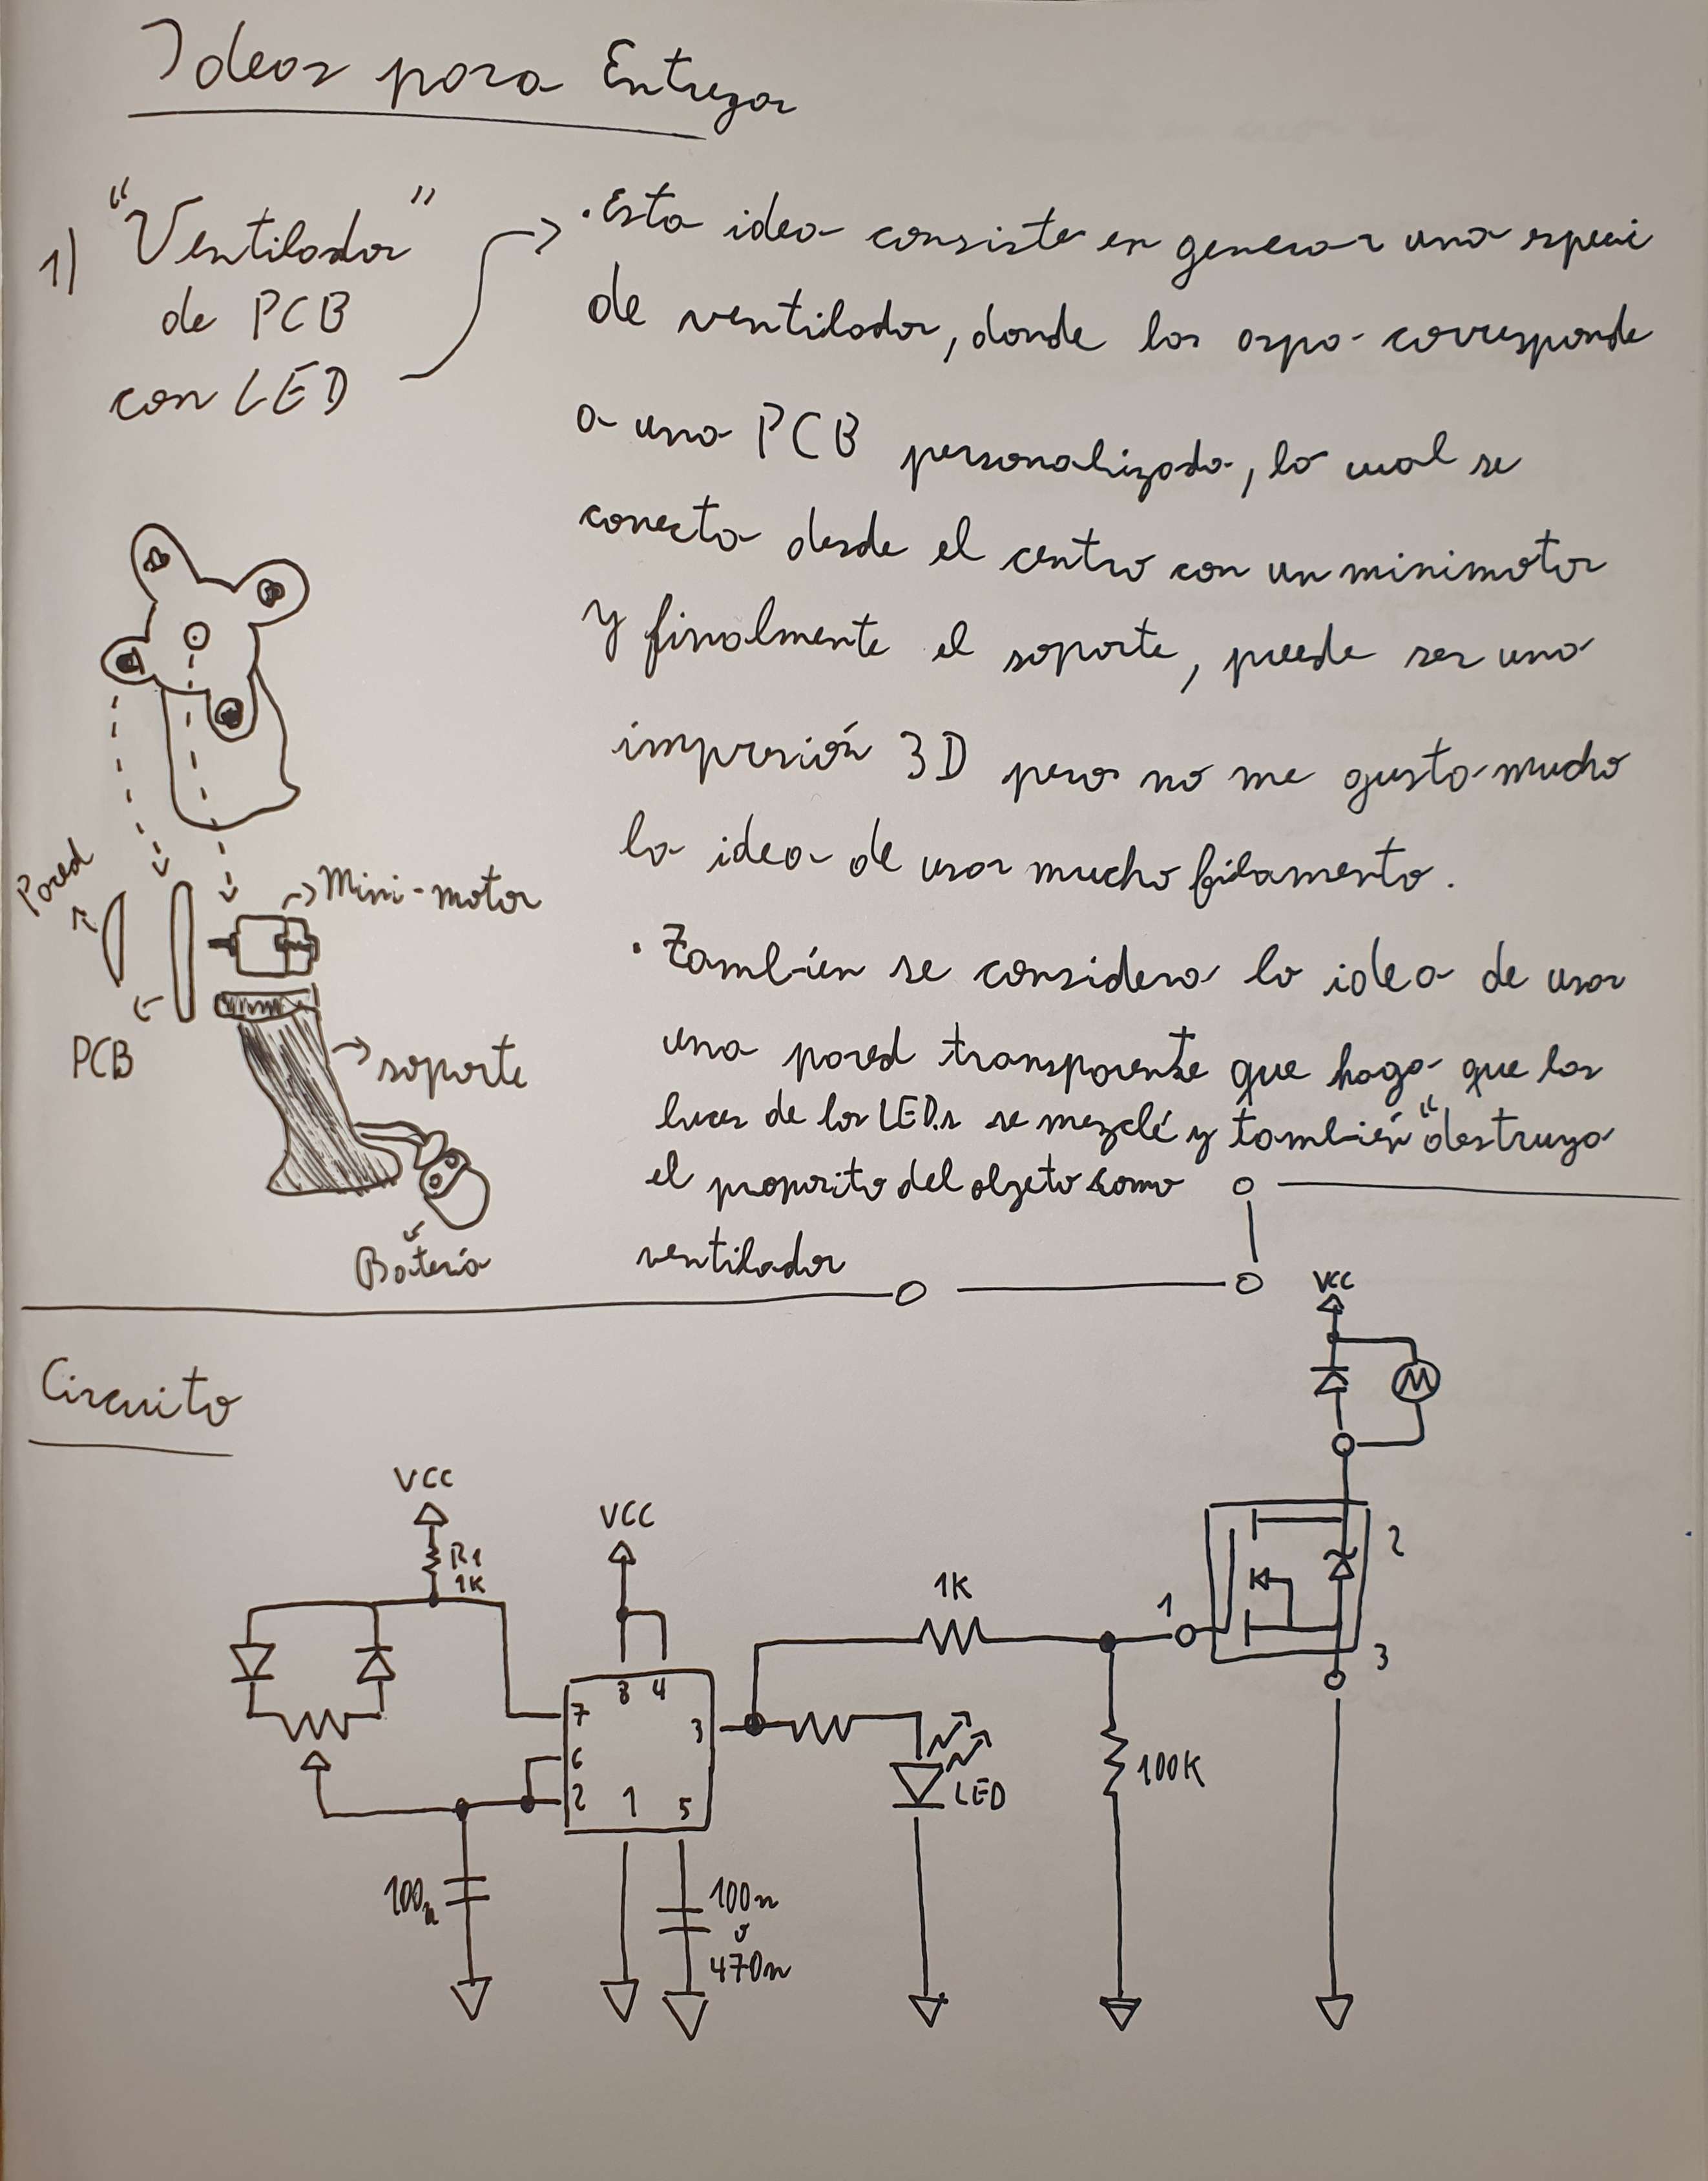 Ideas para Entregar
1) "Ventilador"
de PCB
con LED
· Esta idea consiste en generar una especie
de ventilador, donde las aspa corresponde
a una PCB personalizada, la cual se
conecta desde el centro con un minimotor
y finalmente el soporte, puede ser una
impresión 3D pero no me gusta mucho
la idea de usar mucho filamento.
· También se considera la idea de usar
una pared transparente que haga que las
luces de los LEDs se mezclé y también "destruya
el proposito del objeto como
ventilador
Pared
Mini-motor
PCB
soporte
Batería
Circuito
VCC
VCC
R1
1K
VCC
1K
1
2
3
8 4
7
3
6
2
1 5
LED
100K
100n
100n
ó
470n
M